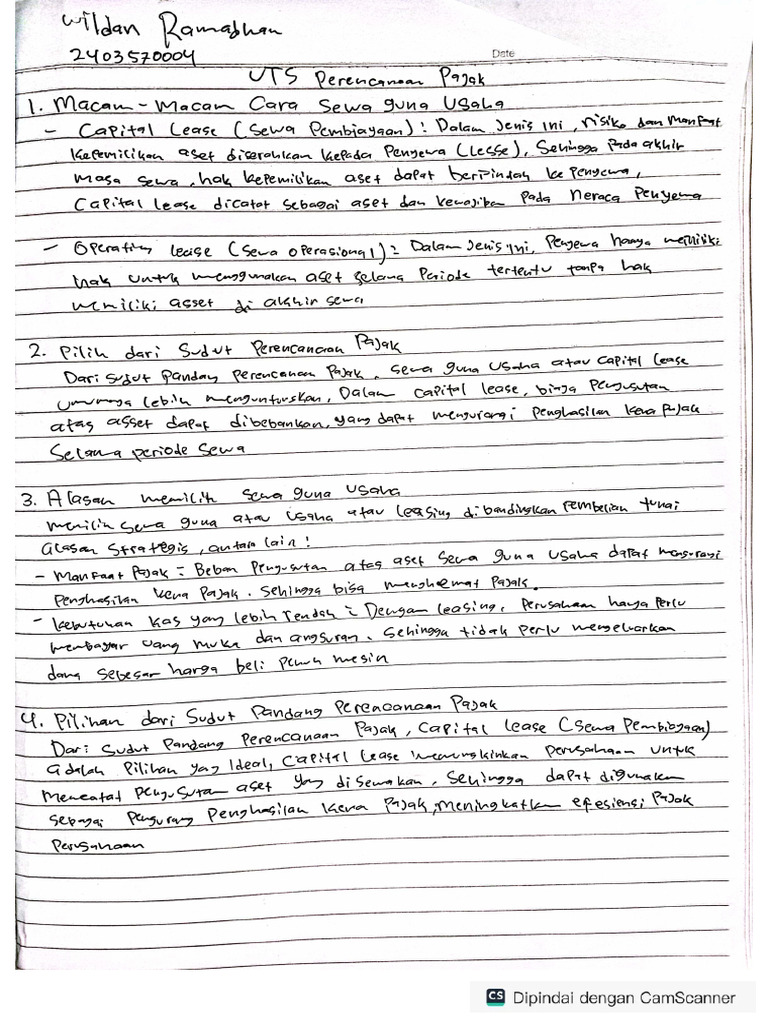 Wildan Ramadhan
2403570004
Date
UTS Perencanaan Pajak
1. Macam-Macam Cara Sewa guna Usaha
- Capital Lease (Sewa Pembiayaan): Dalam Jenis ini, risiko dan Manfaat
Kepemilikan aset diserahkan kepada Penyewa (Lesse), Sehingga Pada akhir
masa sewa, hak kepemilikan aset dapat berpindah ke penyewa,
Capital Lease dicatat sebagai aset dan kewajiban pada Neraca Penyewa
- Operating lease (Sewa Operasional): Dalam Jenis ini, Penyewa hanya memiliki
hak untuk menggunakan aset selama Periode tertentu tanpa hak
memiliki asset di akhir sewa
2. Pilih dari Sudut Perencanaan Pajak
Dari sudut Pandang Perencanan Pajak, Sewa guna Usaha atau Capital Lease
umumnya lebih menguntungkan, Dalam Capital lease, biaya Pengusutan
atas asset dapat dibebankan, yang dapat mengurangi Penghasilan kena Pajak
Selama periode Sewa
3. Alasan memilih Sewa guna Usaha
memilih Sewa guna atau Usaha atau Leasing dibandingkan Pembelian tunai
alasan Strategis, antara lain!
- Manfaat Pajak = Beban Pengusutan atas aset sewa guna Usaha dapat mengurangi
Penghasilan kena Pajak. Sehingga bisa menghemat Pajak.
- Kebutuhan kas yang lebih rendah = Dengan leasing, Perusahaan hanya Perlu
membayar uang muka dan angsuran. Sehingga tidak Perlu mengeluarkan
dana sebesar harga beli Penuh mesin
4. Pilihan dari Sudut Pandang Perencanaan Pajak
Dari Sudut Pandang Perencanaan Pajak, Capital Lease (Sewa Pembiayaan)
adalah Pilihan yang Ideal, Capital Lease memungkinkan perusahaan untuk
mencatat pengusutan aset yang disewakan, Sehingga dapat digunakan
sebagai Pengurang Penghasilan kena Pajak, Meningkatkan efesiensi Pajak
Perusahaan
CS Dipindai dengan CamScanner